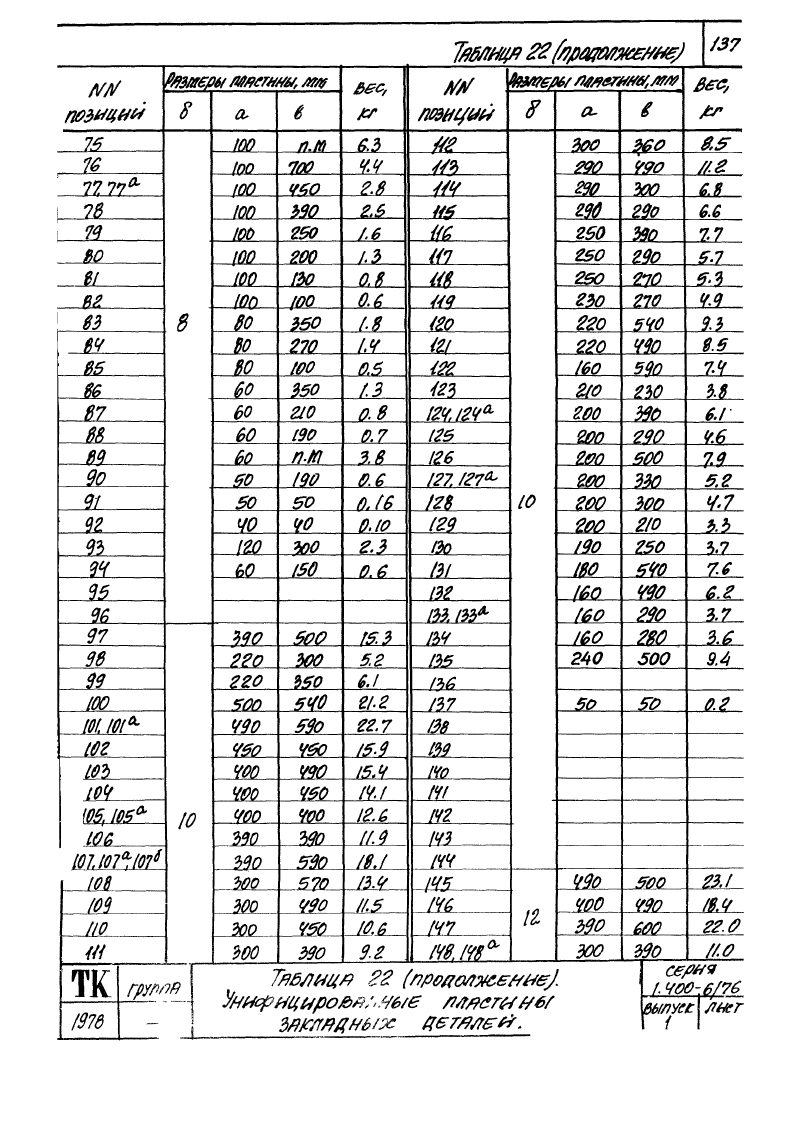 137
Таблица 22 (продолжение)
NN позиций | Размеры пластины, мм | Вес, кг | NN позиций | Размеры пластины, мм | Вес, кг
δ | а | в | δ | а | в
75 | 100 | п.м | 6.3 | 112 | 300 | 360 | 8.5
76 | 100 | 700 | 4.4 | 113 | 290 | 490 | 11.2
77, 77а | 100 | 450 | 2.8 | 114 | 290 | 300 | 6.8
78 | 100 | 390 | 2.5 | 115 | 290 | 290 | 6.6
79 | 100 | 250 | 1.6 | 116 | 250 | 390 | 7.7
80 | 100 | 200 | 1.3 | 117 | 250 | 290 | 5.7
81 | 100 | 130 | 0.8 | 118 | 250 | 270 | 5.3
82 | 100 | 100 | 0.6 | 119 | 230 | 270 | 4.9
83 | 8 | 80 | 350 | 1.8 | 120 | 220 | 540 | 9.3
84 | 80 | 270 | 1.4 | 121 | 220 | 490 | 8.5
85 | 80 | 100 | 0.5 | 122 | 160 | 590 | 7.4
86 | 60 | 350 | 1.3 | 123 | 210 | 230 | 3.8
87 | 60 | 210 | 0.8 | 124, 124а | 200 | 390 | 6.1
88 | 60 | 190 | 0.7 | 125 | 200 | 290 | 4.6
89 | 60 | п.м | 3.8 | 126 | 200 | 500 | 7.9
90 | 50 | 190 | 0.6 | 127, 127а | 200 | 330 | 5.2
91 | 50 | 50 | 0.16 | 128 | 10 | 200 | 300 | 4.7
92 | 40 | 40 | 0.10 | 129 | 200 | 210 | 3.3
93 | 120 | 300 | 2.3 | 130 | 190 | 250 | 3.7
94 | 60 | 150 | 0.6 | 131 | 180 | 540 | 7.6
95 | 132 | 160 | 490 | 6.2
96 | 133, 133а | 160 | 290 | 3.7
97 | 390 | 500 | 15.3 | 134 | 160 | 280 | 3.6
98 | 220 | 300 | 5.2 | 135 | 240 | 500 | 9.4
99 | 220 | 350 | 6.1 | 136
100 | 500 | 540 | 21.2 | 137 | 50 | 50 | 0.2
101, 101а | 490 | 590 | 22.7 | 138
102 | 450 | 450 | 15.9 | 139
103 | 400 | 490 | 15.4 | 140
104 | 400 | 450 | 14.1 | 141
105, 105а | 10 | 400 | 400 | 12.6 | 142
106 | 390 | 390 | 11.9 | 143
107, 107а, 107б | 390 | 590 | 18.1 | 144
108 | 300 | 570 | 13.4 | 145 | 490 | 500 | 23.1
109 | 300 | 490 | 11.5 | 146 | 12 | 400 | 490 | 18.4
110 | 300 | 450 | 10.6 | 147 | 390 | 600 | 22.0
111 | 300 | 390 | 9.2 | 148, 148а | 300 | 390 | 11.0
ТК
1978
группа
–
Таблица 22 (продолжение).
Унифицированные пластины
закладных деталей.
серия
1.400-6/76
выпуск 1
лист